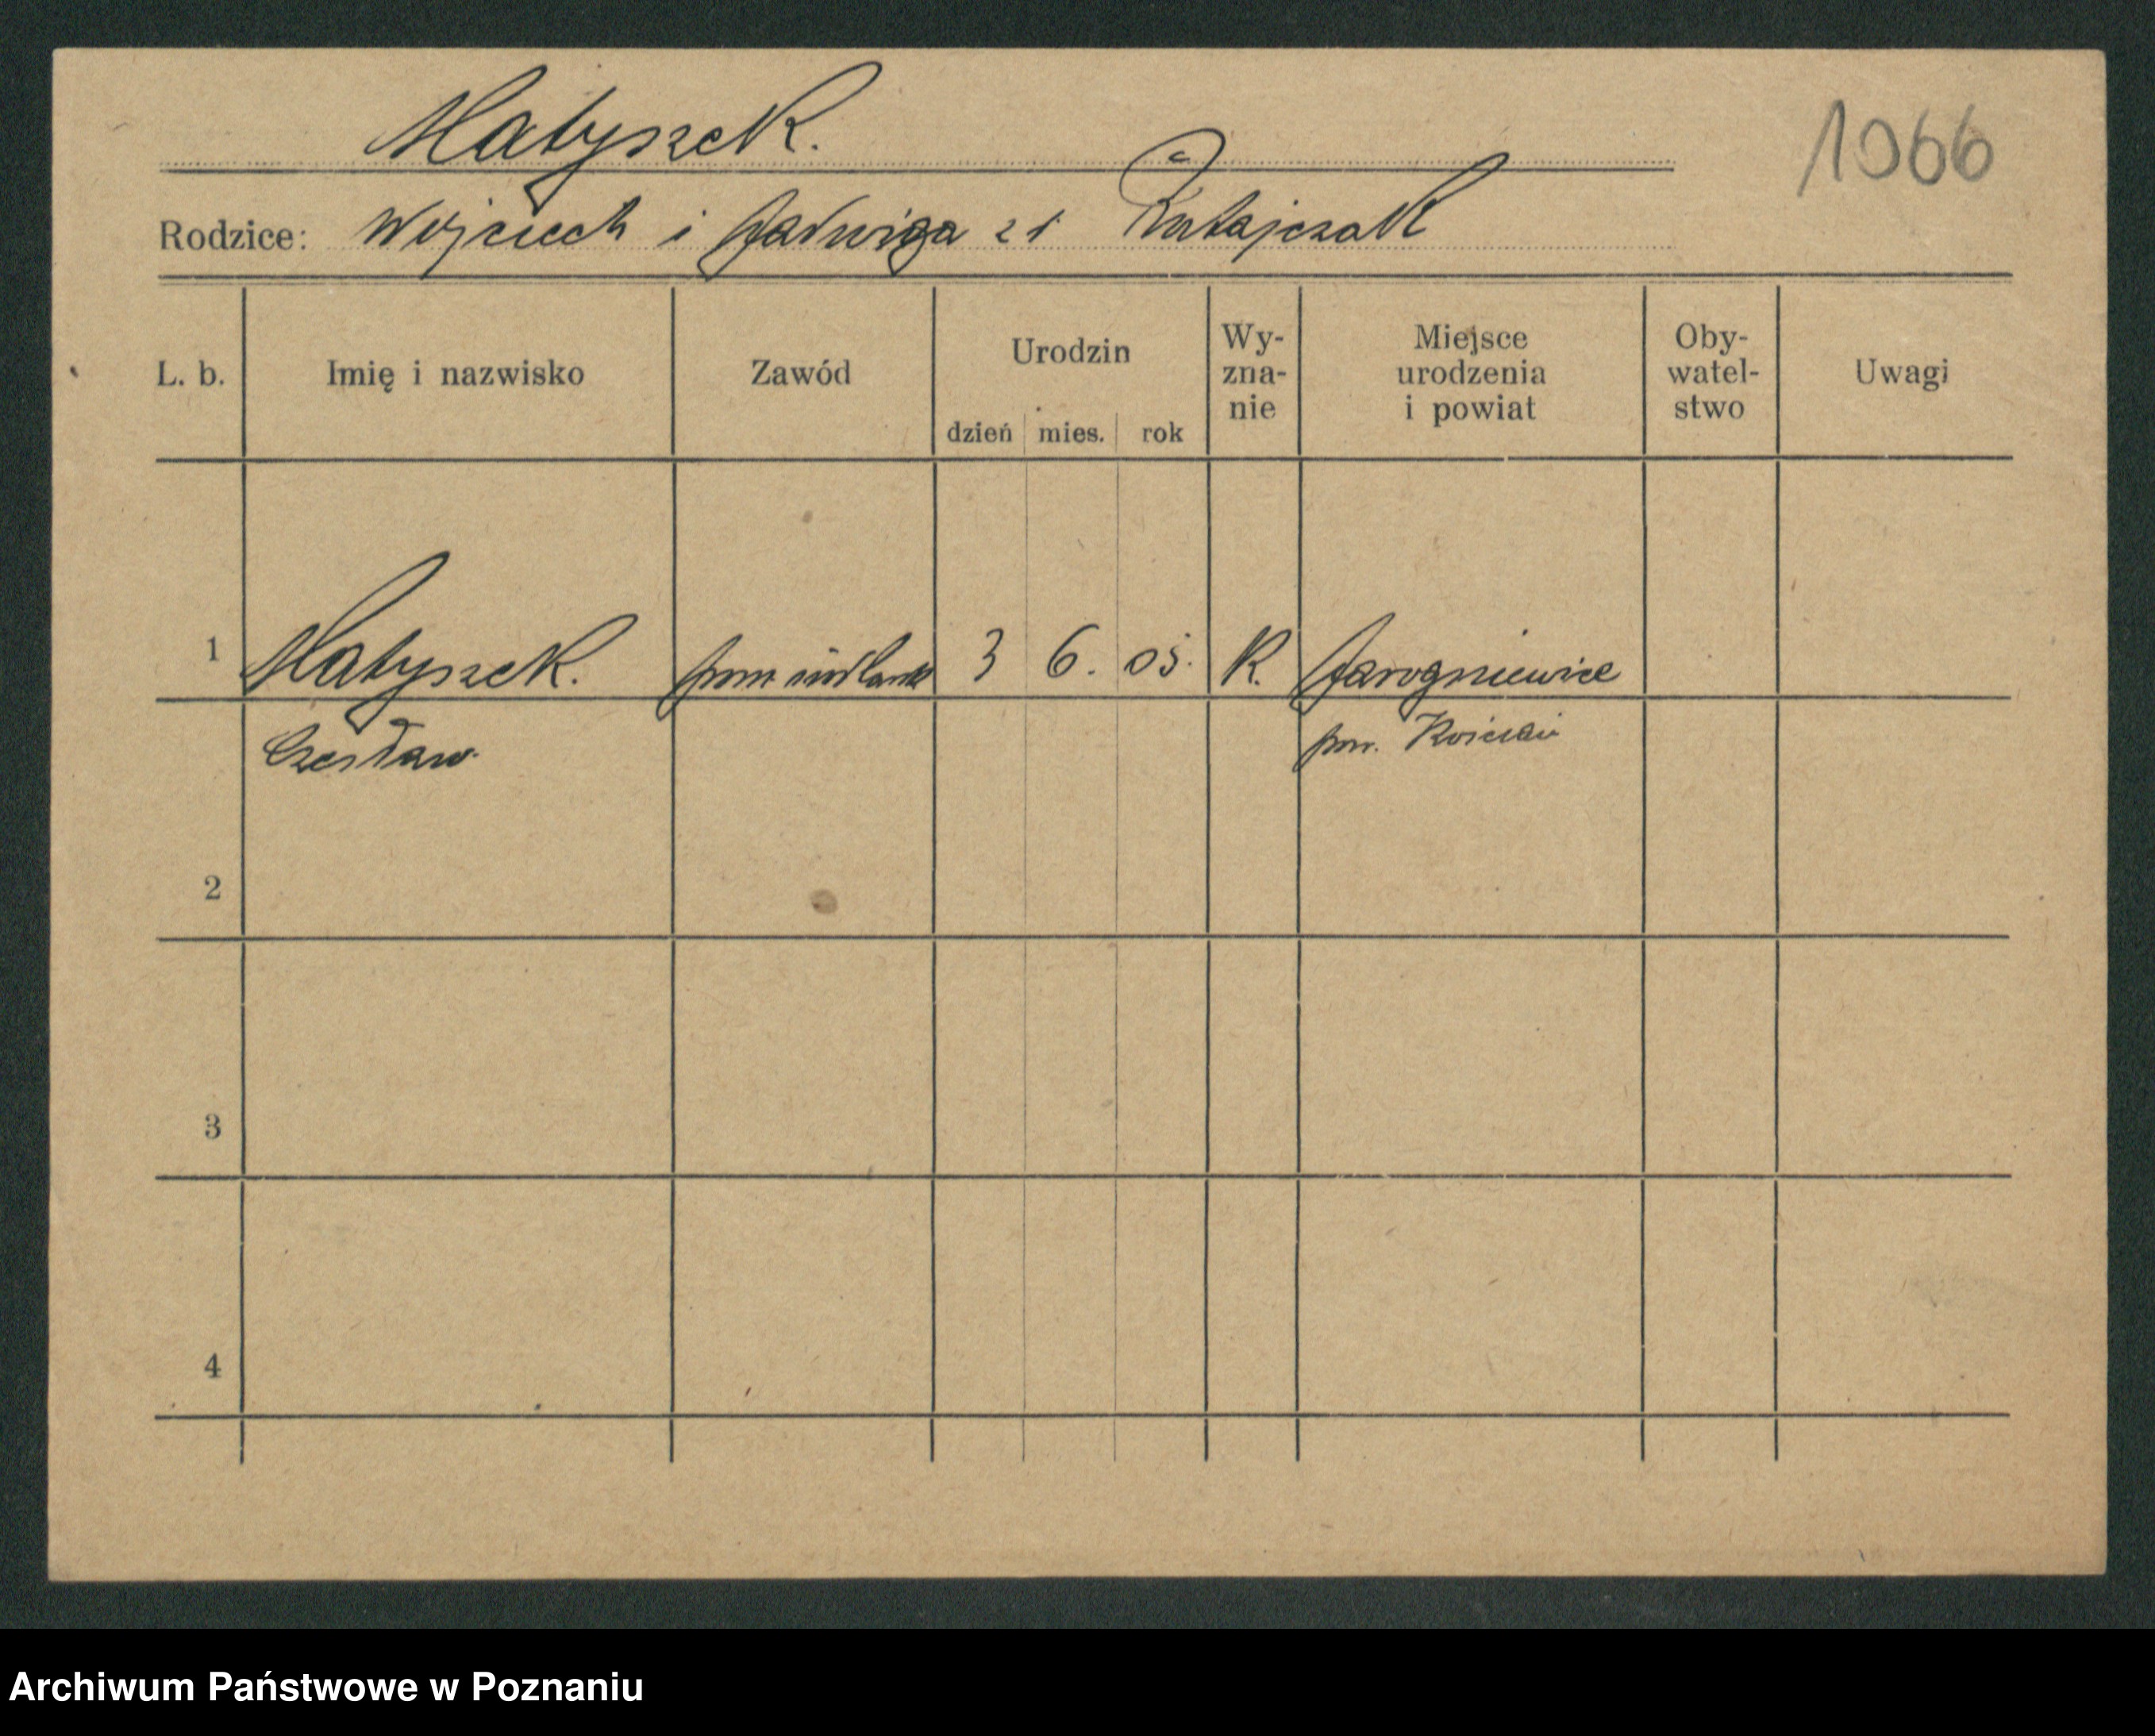 Matyszek.
1066
Rodzice: Wojciech i Jadwiga z d Ratajczak
L. b. Imię i nazwisko Zawód Urodzin dzień mies. rok Wy-zna-nie Miejsce urodzenia i powiat Oby-watel-stwo Uwagi
1 Matyszek. 3 6. 05. K. Jarogniewice
Czesław. pow. Kościan
2
3
4
Archiwum Państwowe w Poznaniu